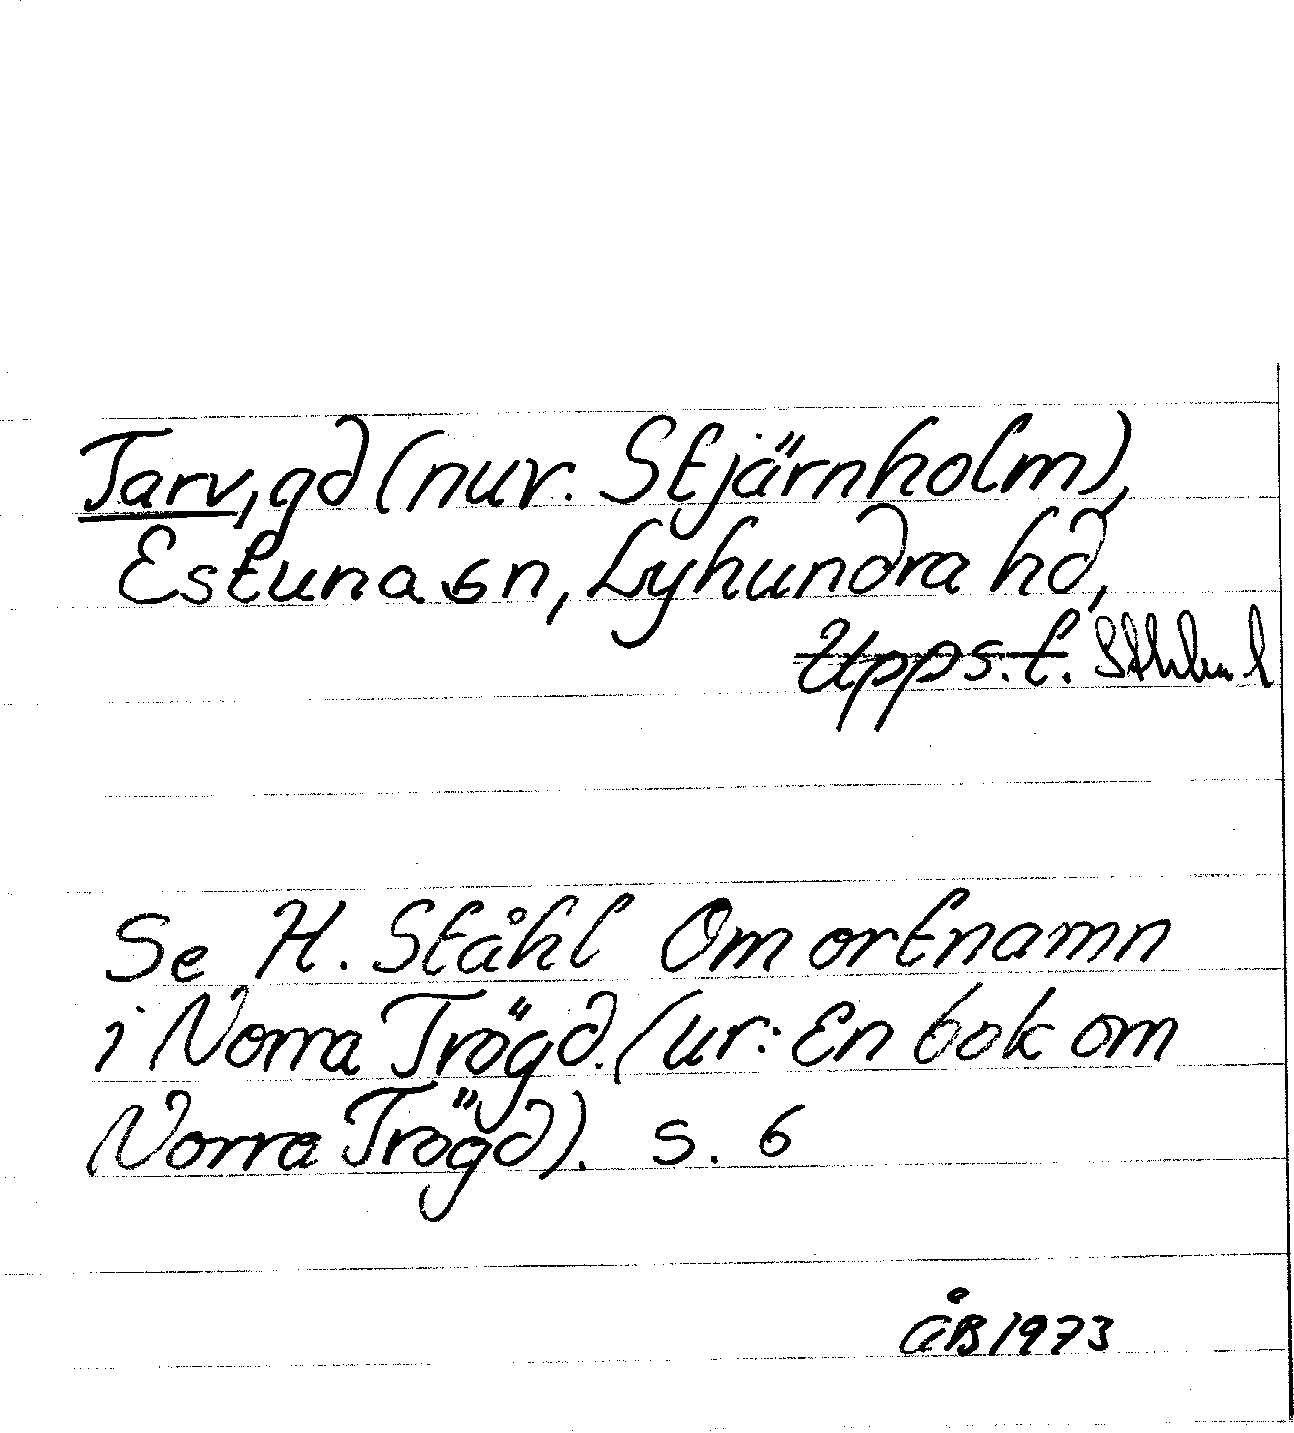 Tarv, gd (nuv. Stjärnholm),
Estuna sn, Lyhundra hd,
Upps. l. Sthlm l
Se H. Ståhl Om ortnamn
i Norra Trögd. (ur: En bok om
Norra Trögd). s. 6
ÅB 1973